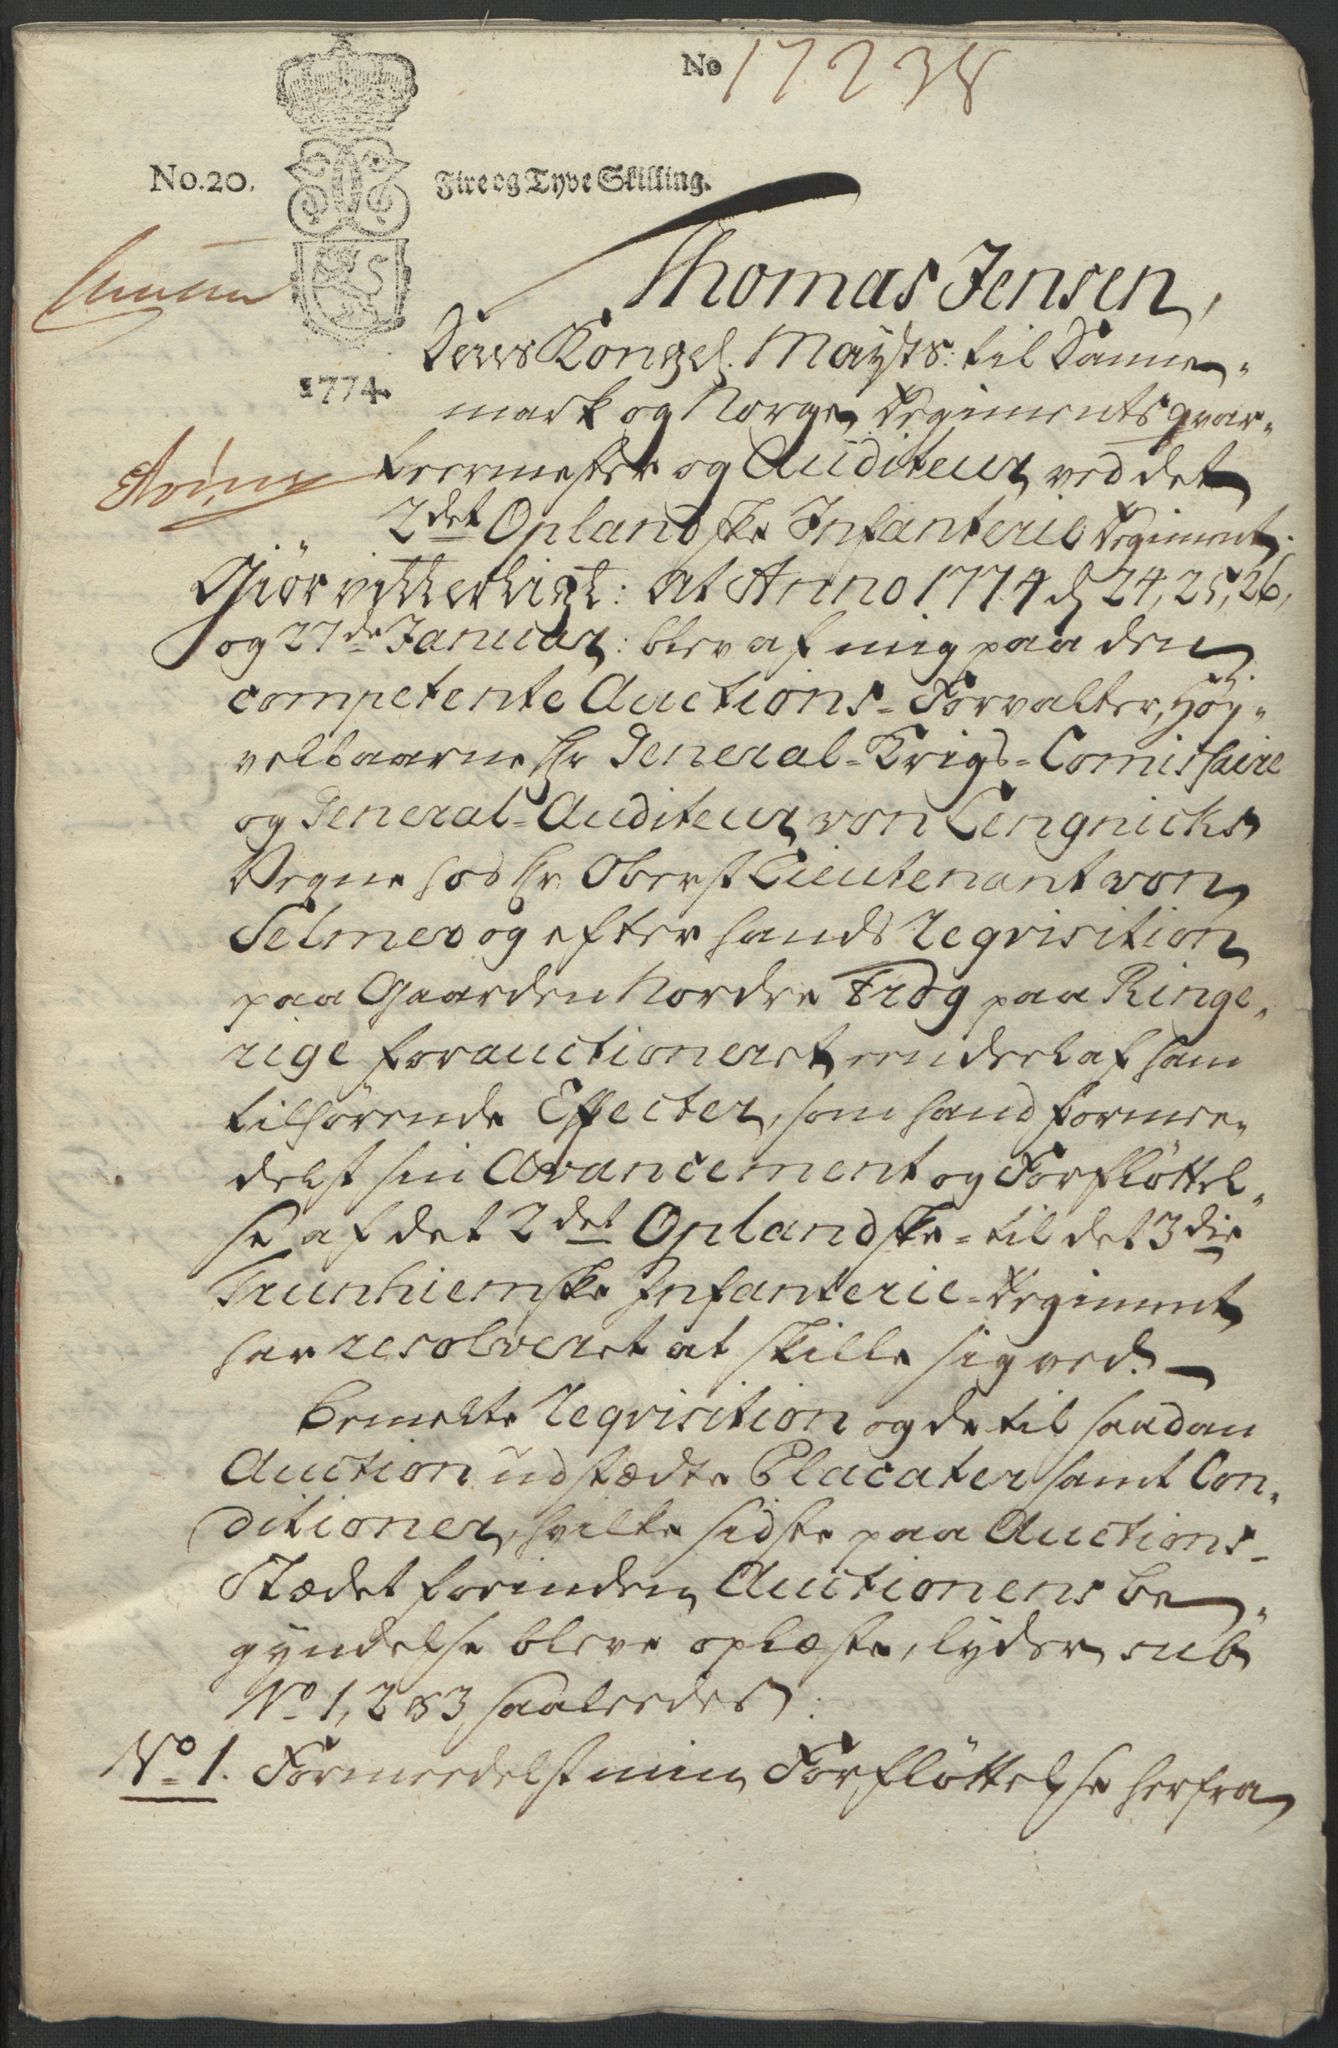 No 17238
No. 20. Fire og Tyve Skilling.
1774.
Thomas Jensen,
Deres Kongel. Mayts: til Danne-
mark og Norge, Regimentsqvar-
teermester og Auditeur, ved det
2det Oplandske Infanterie Regiment.
Giör vitterligt: at Anno 1774 d. 24, 25, 26,
og 27de Januar: blev af mig paa den
competente Auctions-Forvalter, Höy-
velbaarne Hr General-Krigs-Comissaire
og General-Auditeur von Lengnicks
Vegne hos Hr Oberst Lieutenant von
Selmer og efter hands Reqvisition
paa Gaarden Nordre Frog paa Ringe-
rige forauctioneret een deel af ham
tilhörende Effecter, som hand formee-
delst sin Avancement og Forfløttel-
se af det 2det Oplandske- til det 3die
Trunhiemske Infanterie-Regiment
har resolveret at skille sig ved.
Bemelte Reqvisition og de til saadan
Auction udstædte Placater samt Con-
ditioner, hvilke sidste paa Auctions-
Stædet forinden Auctionens Be-
gyndelse bleve oplæste, lyder sub
No 1, 2 & 3 saaledes:
No 1. Formeedelst min Forfløttelse herfra